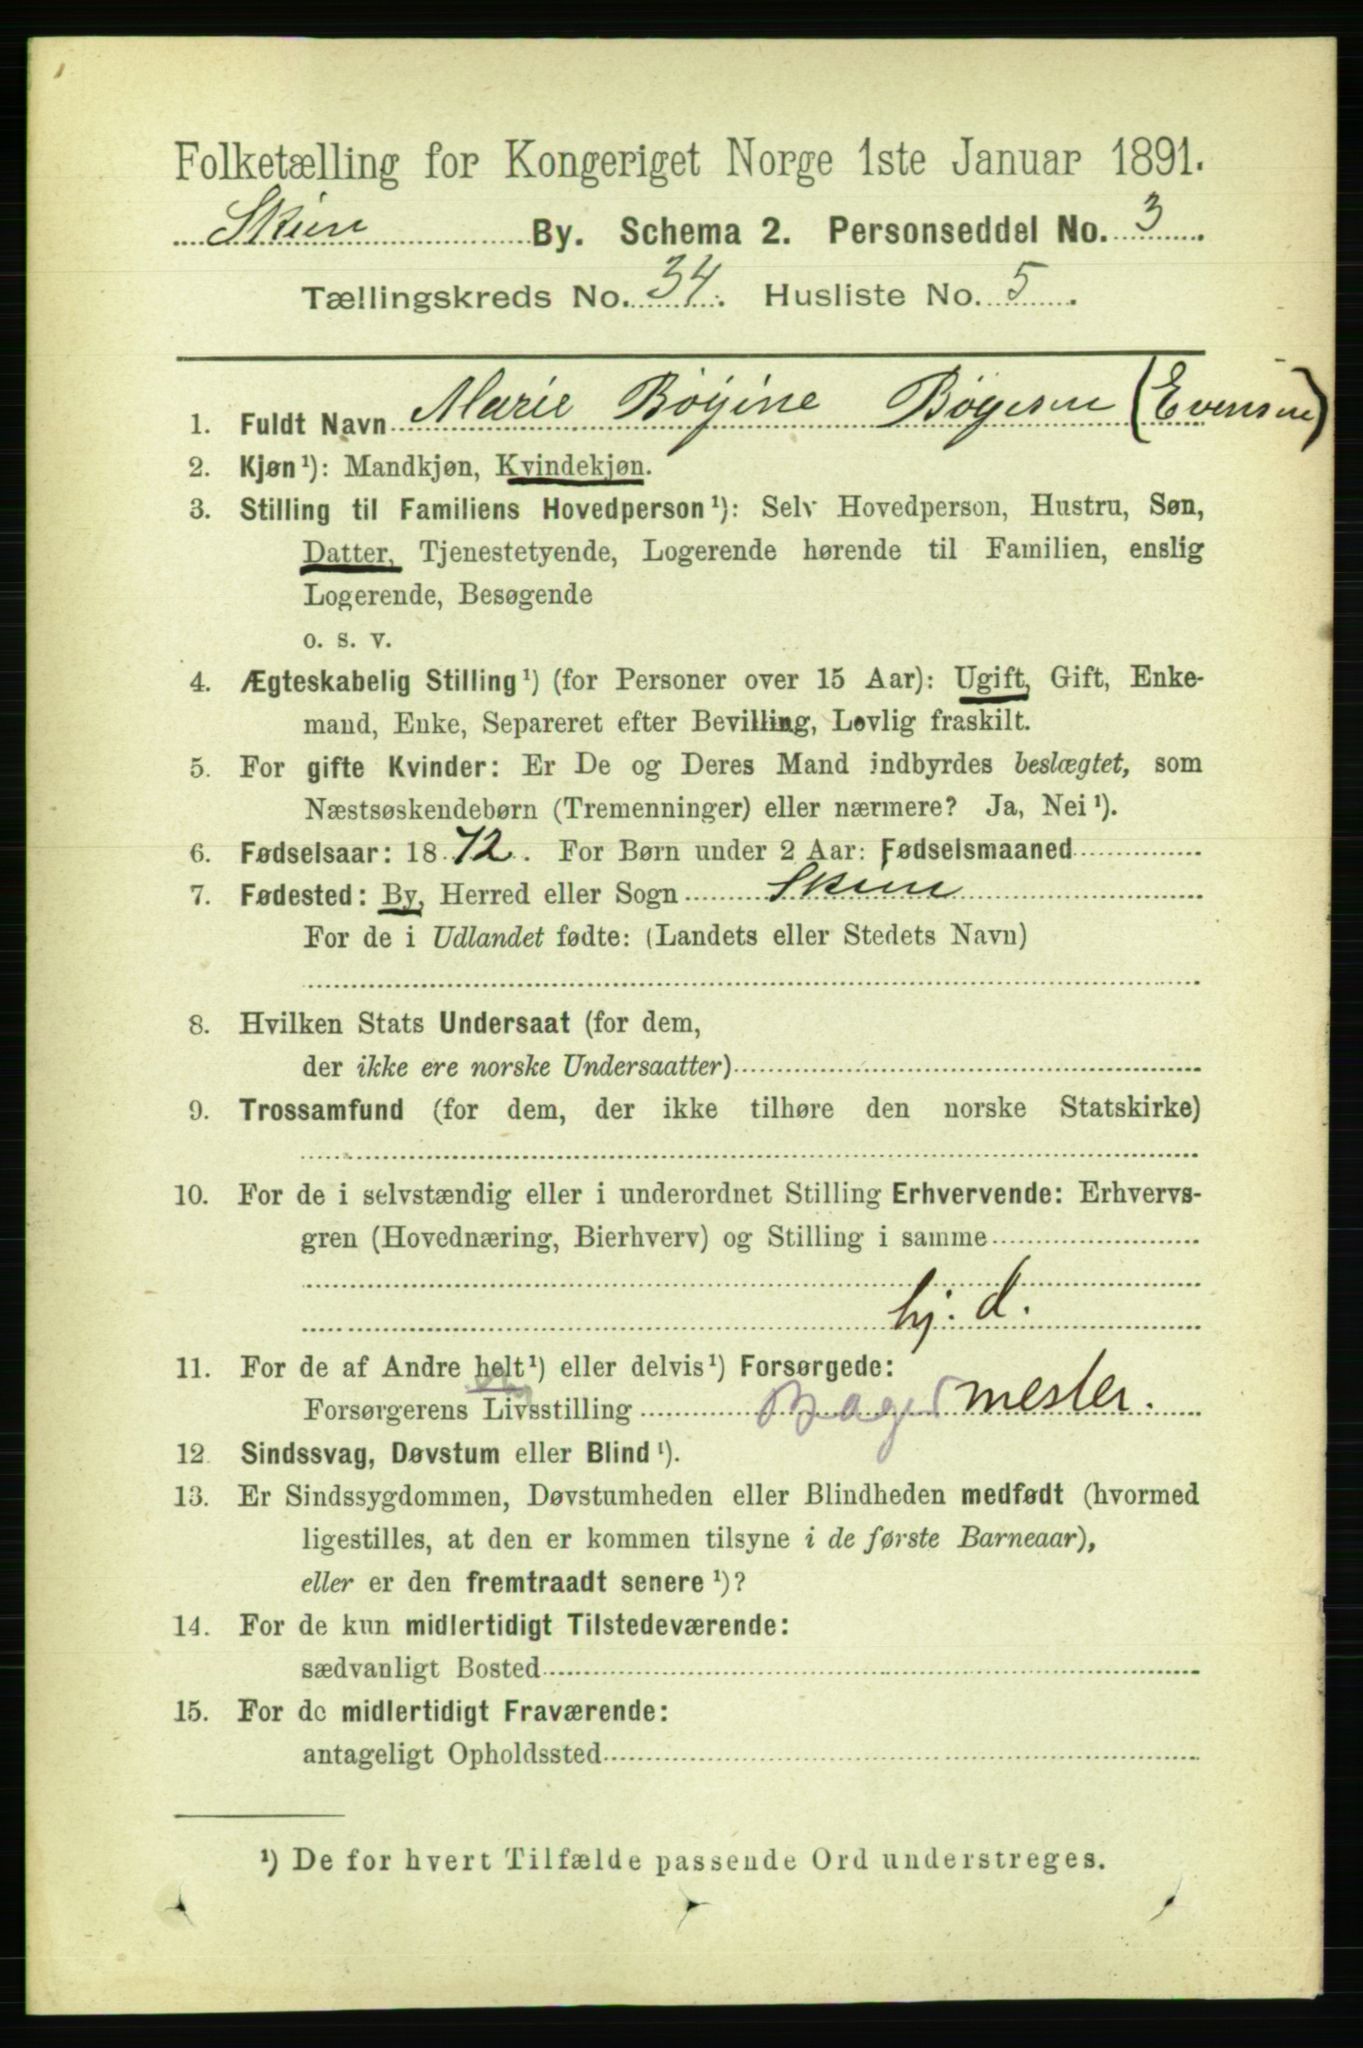 Folketælling for Kongeriget Norge 1ste Januar 1891.
Skien By. Schema 2. Personseddel No. 3.
Tællingskreds No. 34. Husliste No. 5.
1. Fuldt Navn Marie Böyine Bögesen (Evensen)
2. Kjøn¹): Mandkjøn, Kvindekjøn.
3. Stilling til Familiens Hovedperson¹): Selv Hovedperson, Hustru, Søn,
Datter, Tjenestetyende, Logerende hørende til Familien, enslig
Logerende, Besøgende
o. s. v.
4. Ægteskabelig Stilling¹) (for Personer over 15 Aar): Ugift, Gift, Enke-
mand, Enke, Separeret efter Bevilling, Lovlig fraskilt.
5. For gifte Kvinder: Er De og Deres Mand indbyrdes beslægtet, som
Næstsøskendebørn (Tremenninger) eller nærmere? Ja, Nei¹).
6. Fødselsaar: 1872. For Børn under 2 Aar: Fødselsmaaned
7. Fødested: By, Herred eller Sogn Skien
For de i Udlandet fødte: (Landets eller Stedets Navn)
8. Hvilken Stats Undersaat (for dem,
der ikke ere norske Undersaatter)
9. Trossamfund (for dem, der ikke tilhøre den norske Statskirke)
10. For de i selvstændig eller i underordnet Stilling Erhvervende: Erhvervs-
gren (Hovednæring, Bierhverv) og Stilling i samme
hj. d.
11. For de af Andre helt¹) eller delvis¹) Forsørgede:
Forsørgerens Livsstilling Bagermester.
12. Sindssvag, Døvstum eller Blind¹).
13. Er Sindssygdommen, Døvstumheden eller Blindheden medfødt (hvormed
ligestilles, at den er kommen tilsyne i de første Barneaar),
eller er den fremtraadt senere¹)?
14. For de kun midlertidigt Tilstedeværende:
sædvanligt Bosted
15. For de midlertidigt Fraværende:
antageligt Opholdssted
¹) De for hvert Tilfælde passende Ord understreges.